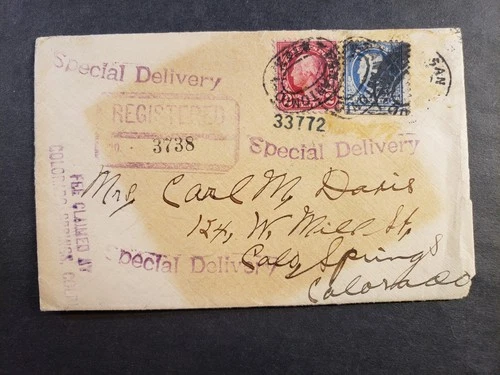 Special Delivery
REGISTERED
NO. - 3738
33772
SAN
Special Delivery
FEE CLAIMED AT
COLORADO SPRINGS, COLO
Mrs, Carl M, Davis
124, W. Mill St,
Colo, Springs
Colorado
Special Delivery